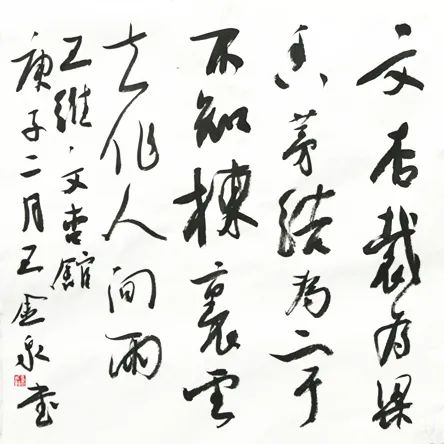 文杏裁為梁
香茅結為宇
不知棟裏雲
去作人間雨
王維·文杏館
庚子二月王金泉書